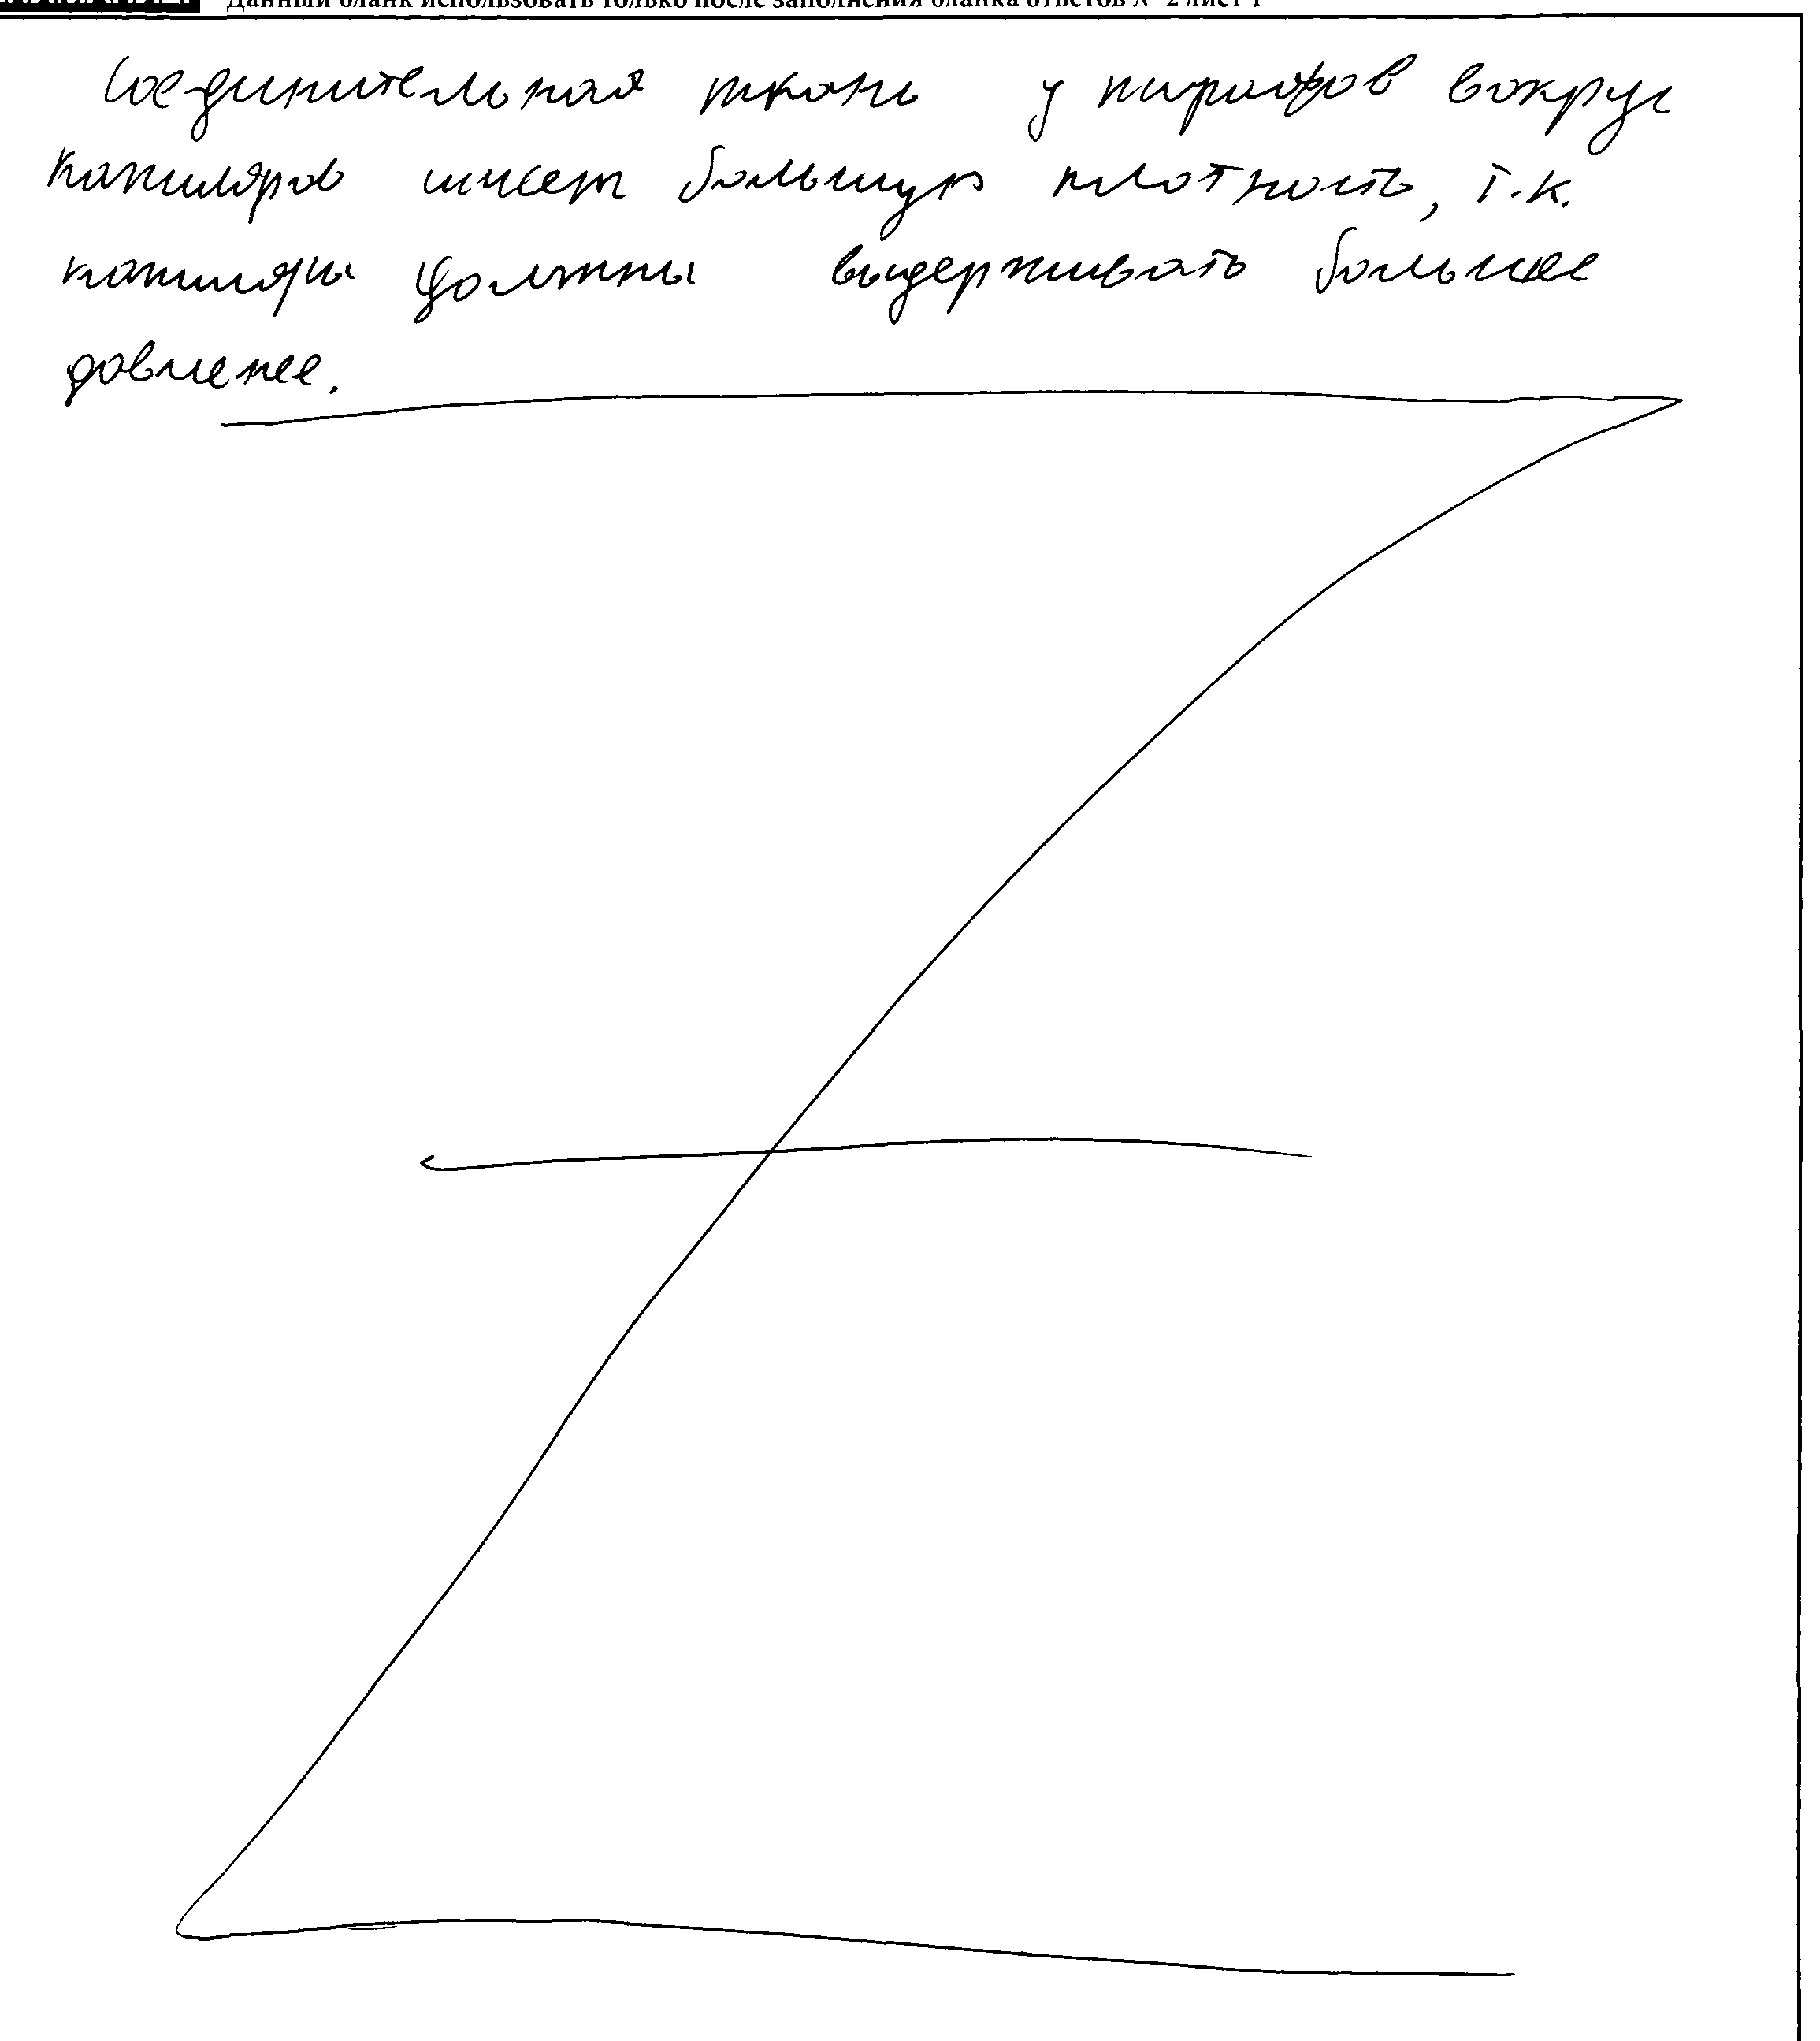 Данный бланк использовать только после заполнения бланка ответов № 2 лист 1
Соединительная ткань у жирафов вокруг
капиляров имеет большую плотность, т.к.
капиляры должны выдерживать большее
давление.